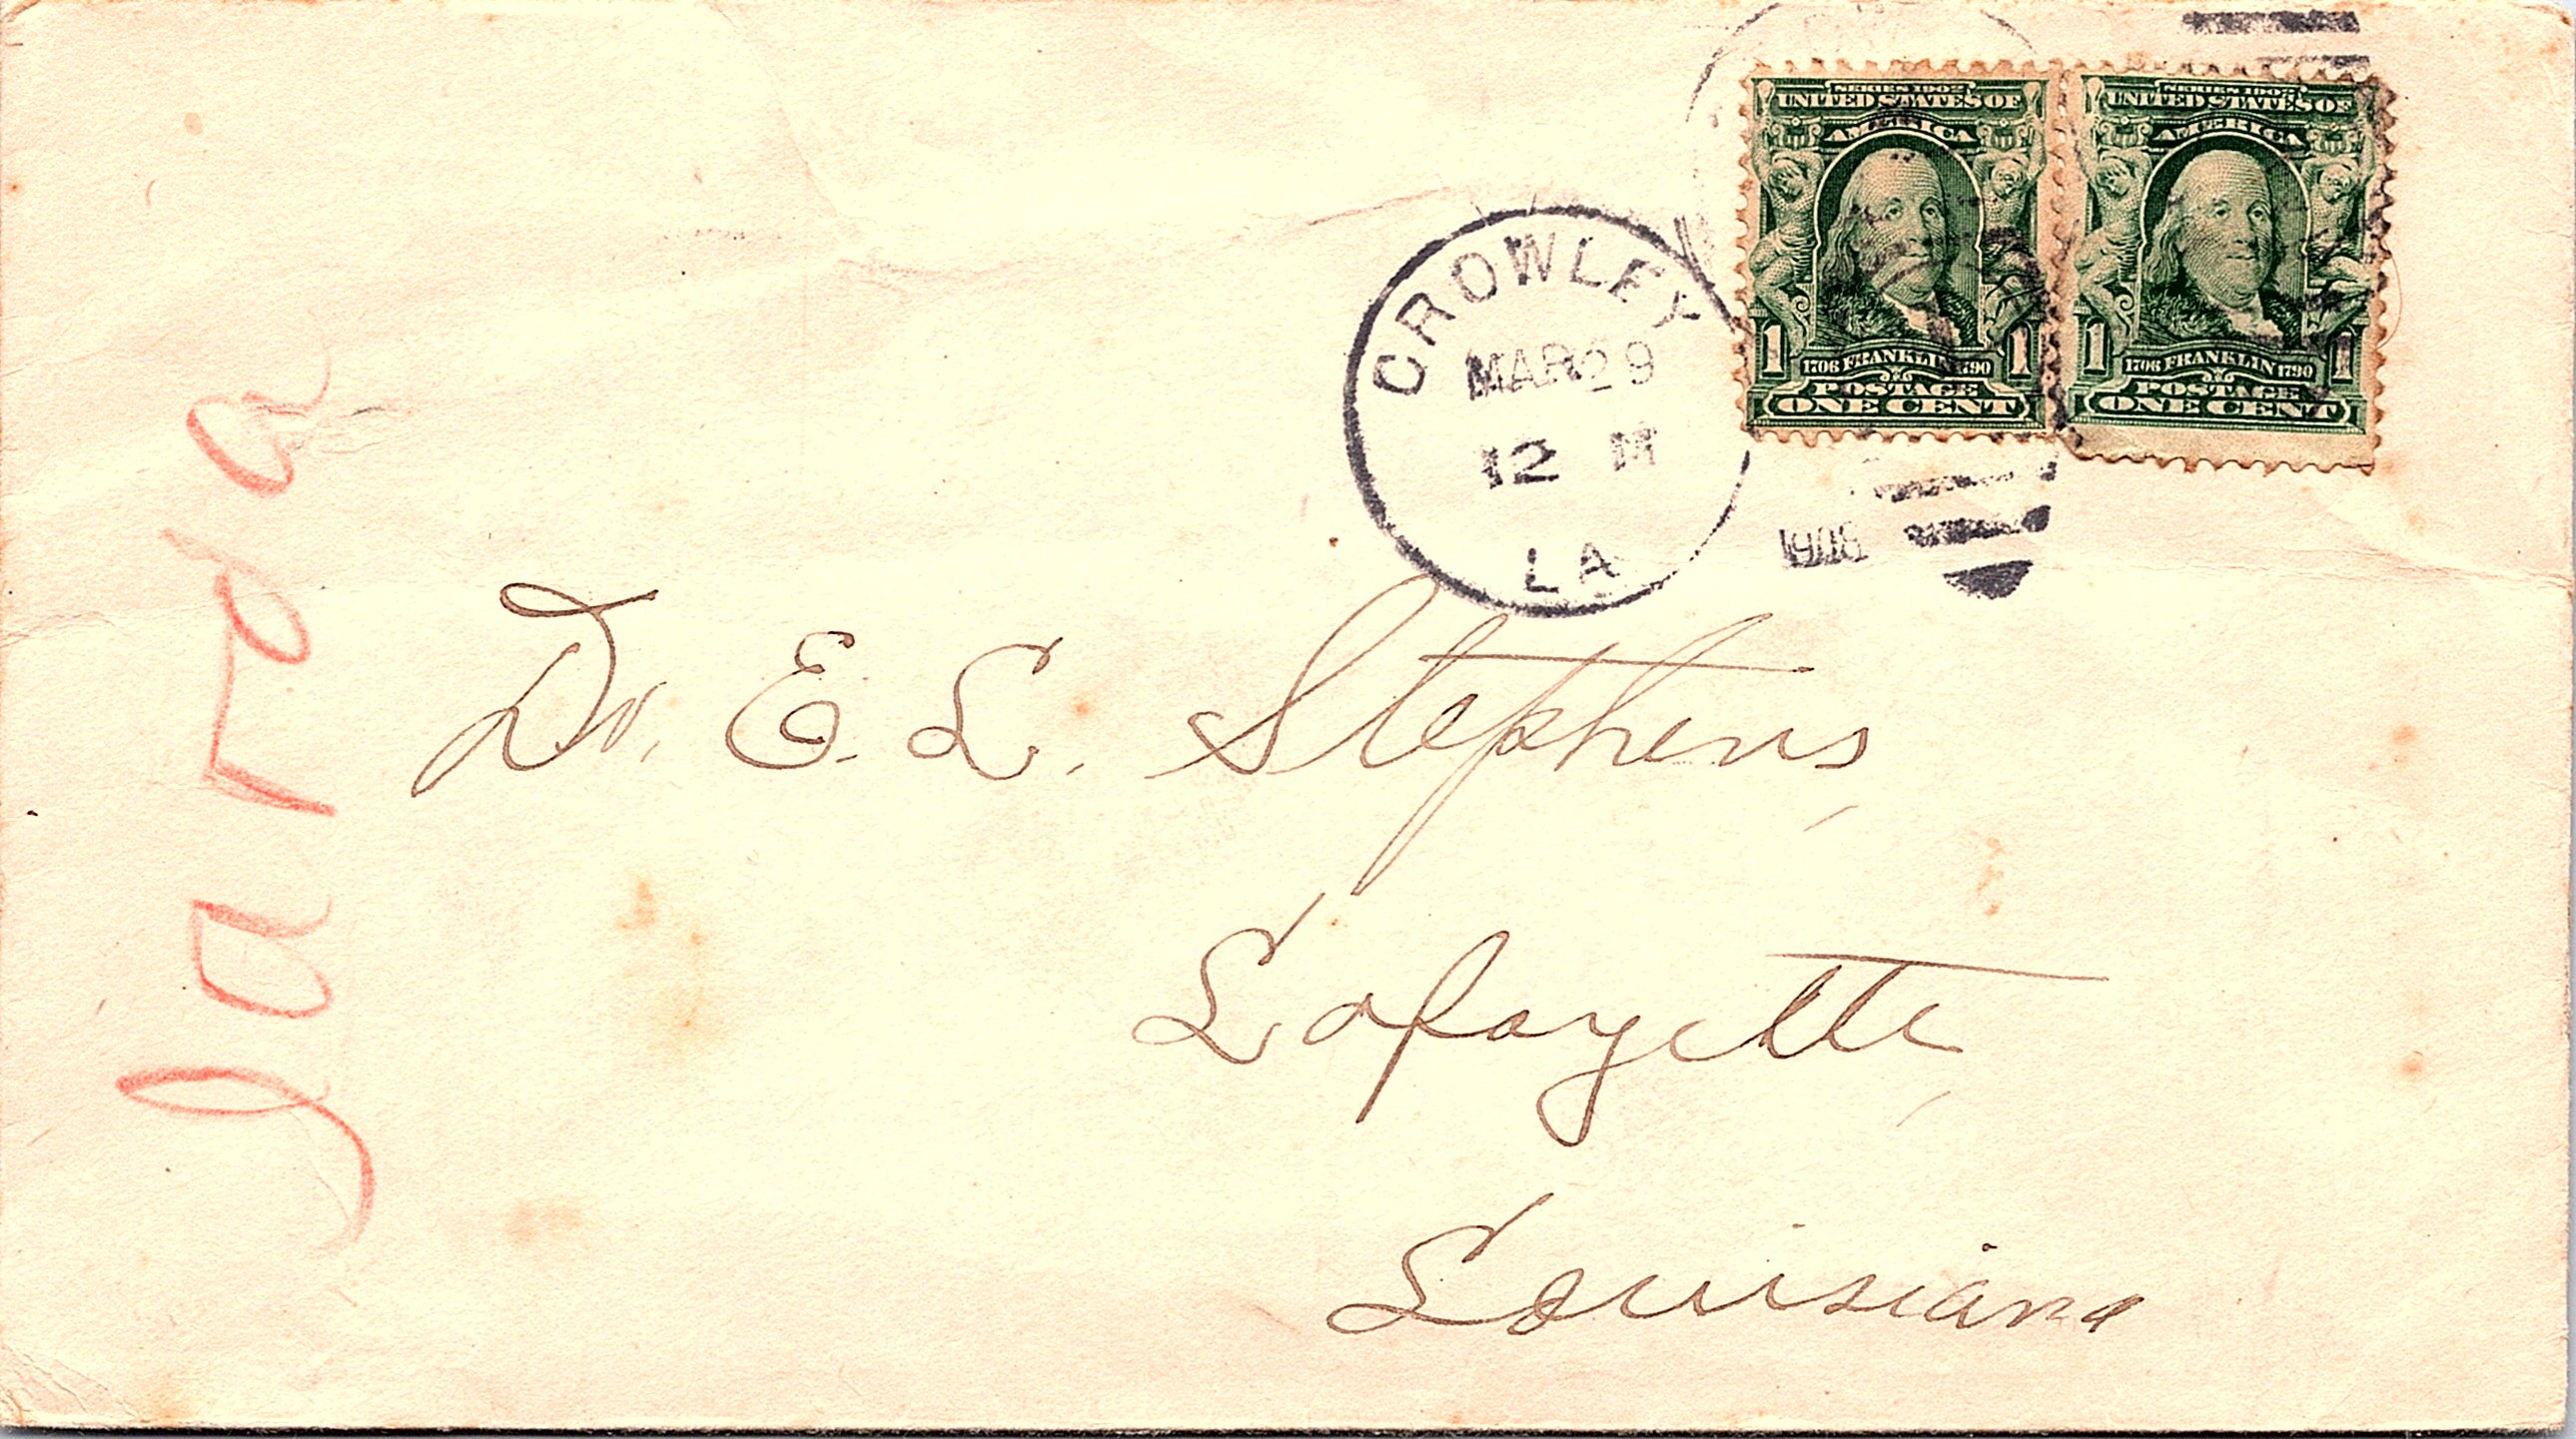 SERIES 1902
UNITED STATES OF
AMERICA
1 1
1706 FRANKLIN 1790
POSTAGE
ONE CENT
SERIES 1902
UNITED STATES OF
AMERICA
1 1
1706 FRANKLIN 1790
POSTAGE
ONE CENT
CROWLEY
MAR 29
12 M
LA
1908
Dr. E. L. Stephens,
Lafayette,
Louisiana